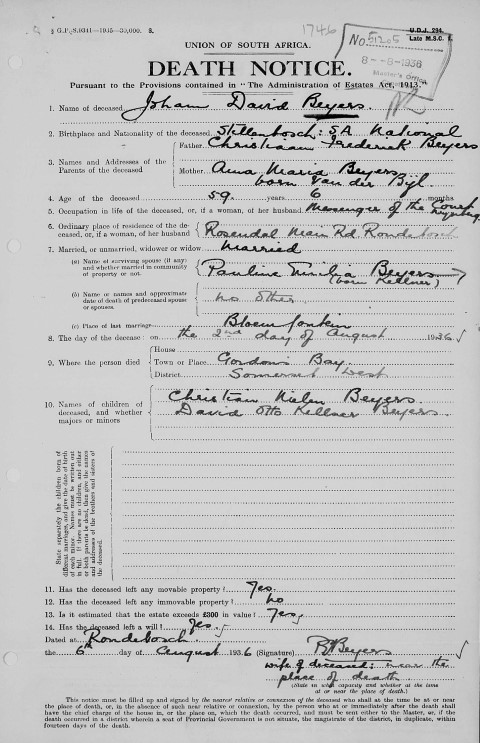 § G.P.-S.9341—1935—30,000. S.
1746
U.D.J. 294.
Late M.S.C.
No 51205
8 - -8-1936
Master's Office
UNION OF SOUTH AFRICA.
DEATH NOTICE.
Pursuant to the Provisions contained in "The Administration of Estates Act, 1913."
1. Name of deceased Johan David Beyers
2. Birthplace and Nationality of the deceased Stellenbosch: SA National
3. Names and Addresses of the Parents of the deceased
Father Christiaan Frederick Beyers
Mother Anna Maria Beyers
born Van der Byl
4. Age of the deceased 59 years 6 months
5. Occupation in life of the deceased, or, if a woman, of her husband Messenger of the Court
Wynberg
6. Ordinary place of residence of the deceased, or, if a woman, of her husband Rosendal Main Rd Rondebosch
7. Married, or unmarried, widower or widow Married
(a) Name of surviving spouse (if any) and whether married in community of property or not.
Pauline Emilia Beyers
(born Kellner)
(b) Name or names and approximate date of death of predeceased spouse or spouses.
no other
(c) Place of last marriage Bloemfontein
8. The day of the decease: on the 2nd day of August 1936
9. Where the person died
House
Town or Place Gordons Bay
District Somerset West
10. Names of children of deceased, and whether majors or minors
Christian Beyers
David Otto Kellner Beyers
State separately the children born of different marriages, and give the date of birth of each minor. Names must be written out in full. If there are no children, and either or both parents be dead, then give the names and addresses of the brothers and sisters of the deceased.
11. Has the deceased left any movable property? Yes
12. Has the deceased left any immovable property? no
13. Is it estimated that the estate exceeds £300 in value? Yes
14. Has the deceased left a will? Yes
Dated at Rondebosch
the 6th day of August 1936 (Signature) Beyers
wife of deceased: near the
place of death
(State in what capacity and whether at the time at or near the place of death.)
This notice must be filled up and signed by the nearest relative or connexion of the deceased who shall at the time be at or near
the place of death, or, in the absence of such near relative or connexion, by the person who at or immediately after the death shall
have the chief charge of the house in, or the place on, which the death occurred, and must be sent either to the Master, or, if the
death occurred in a district wherein a seat of Provincial Government is not situate, the magistrate of the district, in duplicate, within
fourteen days of the death.